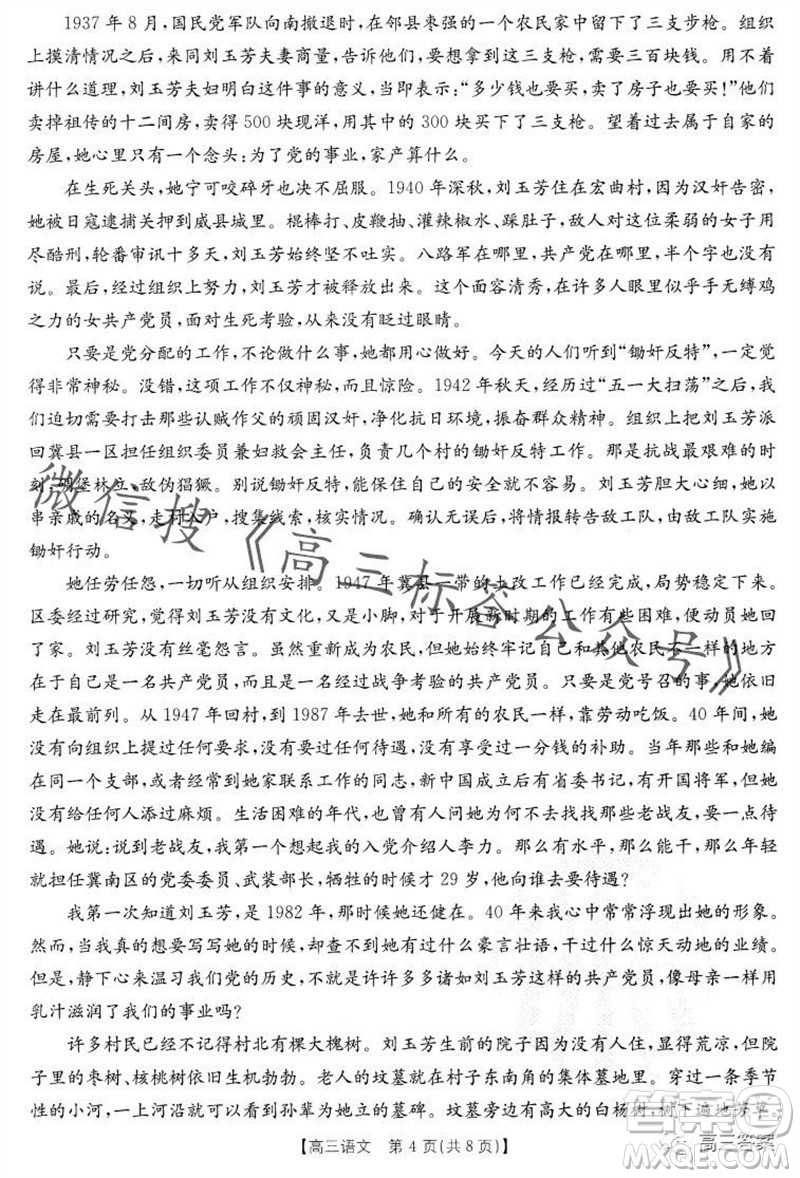 1937 年 8 月,国民党军队向南撤退时,在邻县枣强的一个农民家中留下了三支步枪。组织
上摸清情况之后,来同刘玉芳夫妻商量,告诉他们,要想拿到这三支枪,需要三百块钱。用不着
讲什么道理,刘玉芳夫妇明白这件事的意义,当即表示:“多少钱也要买,卖了房子也要买!”他们
卖掉祖传的十二间房,卖得 500 块现洋,用其中的 300 块买下了三支枪。离开曾属于自家的
房屋,她心里只有一个念头:为了党的事业,家产算什么。
在生死关头,她宁可咬碎牙也决不屈服。1940 年深秋,刘玉芳住在宏曲村,因为汉奸告密,
她被日寇逮捕关押到威县城里。棍棒打、皮鞭抽、灌辣椒水、踩肚子,敌人对这位柔弱的女子用
尽酷刑,轮番审讯十多天,刘玉芳始终坚不吐实。八路军在哪里,共产党在哪里,半个字也没有
说。最后,经过组织上努力,刘玉芳才被释放出来。这个面容清秀,在许多人眼里似乎手无缚鸡
之力的女共产党员,面对生死考验,从来没有眨过眼睛。
只要是党分配的工作,不论做什么事,她都用心做好。今天的人们听到“锄奸反特”,一定觉
得非常神秘。没错,这项工作不仅神秘,而且惊险。1942 年秋天,经历过“五一大扫荡”之后,我
们迫切需要打击那些认贼作父的顽固汉奸,净化抗日环境,振奋群众精神。组织上将刘玉芳派
回冀县一区担任组织委员兼妇救会主任,负责几个村的锄奸反特工作。那是抗战最艰难的时
刻,碉堡林立,敌伪猖獗。别说锄奸反特,能保住自身安全就不容易。刘玉芳胆大心细,她以
串亲戚的名义,走村入户,搜集线索,核实情况。确认无误后,将情报转告敌工队,由敌工队实施
锄奸行动。
她任劳任怨,一切听从组织安排。1947 年冀县一带的土改工作已经完成,局势稳定下来。
区委经过研究,觉得刘玉芳没有文化,又是小脚,对于开展新时期的工作有些困难,便动员她回
了家。刘玉芳没有丝毫怨言。虽然重新成为农民,但她始终牢记自己和其他农民不一样的地方
在于自己是一名共产党员,是一名经过战争考验的共产党员。只要是党号召的事,她依旧
走在最前列。从 1947 年回村,到 1987 年去世,她和周围的农民一样,靠劳动吃饭。40 年间,她
没有向组织上提过任何要求,没有要过任何待遇,没有享受过一分钱的补助。当年那些和她编
在同一个支部,或者到她家联系工作的同志,新中国成立后有省委书记,有开国将军,但她
没有给任何人添过麻烦。生活困难的年代,也曾有人问她为什么不找那些老战友,要一点待
遇。她说:说到老战友,我第一个想起我的入党介绍人李力。那么有水平,那么能干,那么年轻
就担任冀南区的党委委员、武装部长,牺牲的时候才 29 岁,他向谁去要待遇?
我第一次知道刘玉芳,是 1982 年,那时候她还健在。40 年来我心中常常浮现出她的形象。
然而,当真的想要写写她的时候,却觉得她没有什么豪言壮语,干过什么惊天动地的业绩。
但是,静下心来温习我们党的历史,不是许许多多诸如刘玉芳这样的共产党员,像母亲一样用
乳汁滋润了我们的事业吗?
许多村民已经不记得村北有棵大槐树。刘玉芳生前的院子因为没有人住,显得荒凉,但院
子里的枣树、核桃树依旧生机勃勃。老人的坟墓就在村子东南角的集体墓地里。穿过一条季节
性的小河,一上河沿就可以看到孙辈为她立的墓碑。坟墓旁边有高大的白杨树,树下遍地芳草,
【高三语文　第 4 页(共 8 页)】
微信搜《高三标答公众号》
高三答案
MXQE.COM